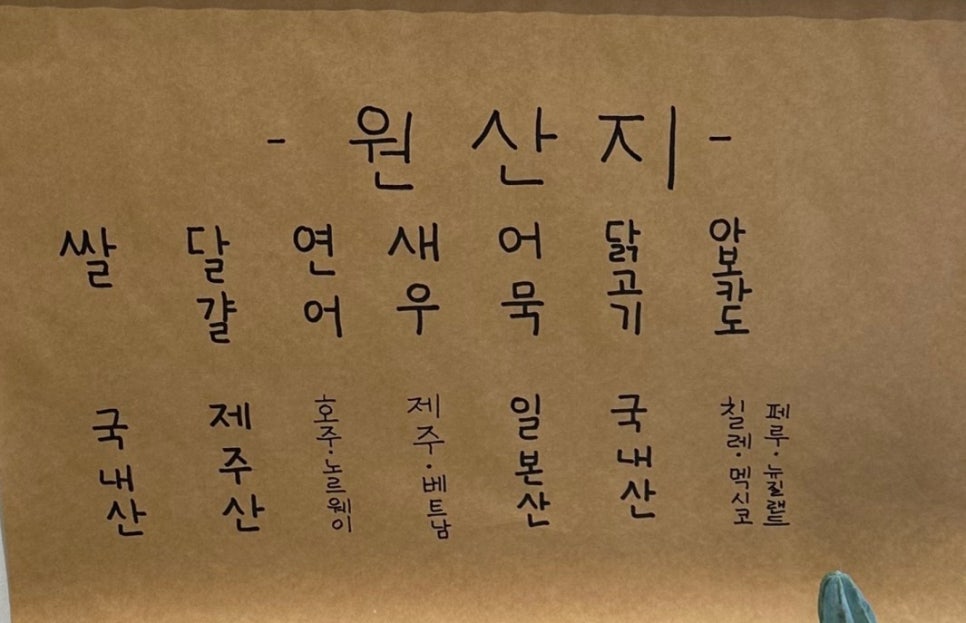 - 원산지 -
쌀
달걀
연어
새우
어묵
닭고기
아보카도
국내산
제주산
호주·노르웨이
제주·베트남
일본산
국내산
칠레·멕시코
페루·뉴질랜드